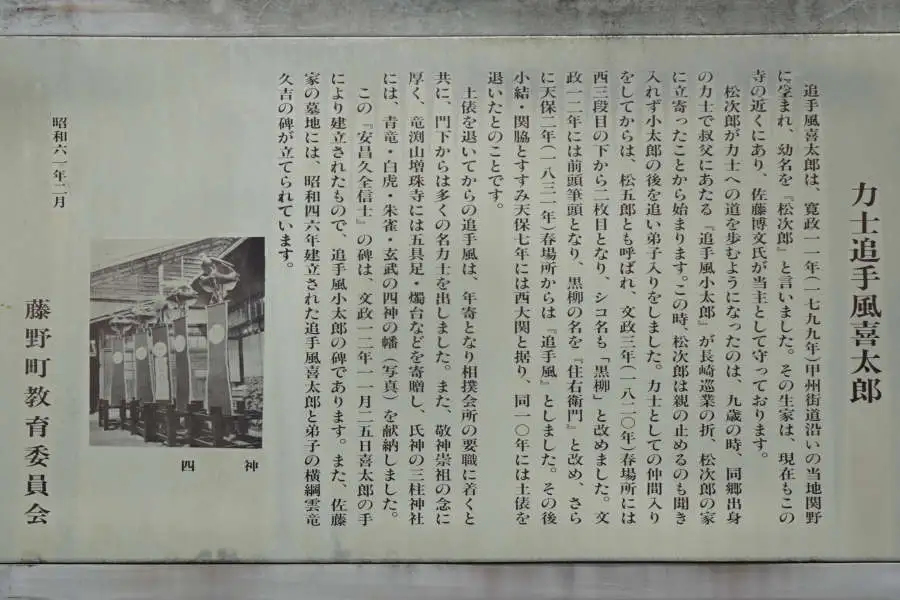 力士追手風喜太郎
追手風喜太郎は、寛政一一年(一七九九年)甲州街道沿いの当地関野
に生まれ、幼名を『松次郎』と言いました。その生家は、現在もこの
寺の近くにあり、佐藤博文氏が当主として守っております。
松次郎が力士への道を歩むようになったのは、九歳の時、同郷出身
の力士で叔父にあたる『追手風小太郎』が長崎巡業の折、松次郎の家
に立寄ったことから始まります。この時、松次郎は親の止めるのも聞き
入れず小太郎の後を追い弟子入りをしました。力士としての仲間入り
をしてからは、松五郎とも呼ばれ、文政三年(一八二〇年)春場所には
西三段目の下から二枚目となり、シコ名も「黒柳」と改めました。文
政一二年には前頭筆頭となり、黒柳の名を『住右衛門』と改め、さら
に天保二年(一八三一年)春場所からは『追手風』としました。その後
小結・関脇とすすみ天保七年には西大関と据り、同一〇年には土俵を
退いたとのことです。
土俵を退いてからの追手風は、年寄となり相撲会所の要職に着くと
共に、門下からは多くの名力士を出しました。また、敬神崇祖の念に
厚く、竜渕山増珠寺には五具足・燭台などを寄贈し、氏神の三柱神社
には、青竜・白虎・朱雀・玄武の四神の幡(写真)を献納しました。
この『安昌久全信士』の碑は、文政一二年一一月二五日喜太郎の手
により建立されたもので、追手風小太郎の碑であります。また、佐藤
家の墓地には、昭和四六年建立された追手風喜太郎と弟子の横綱雲竜
久吉の碑が立てられています。
四神
昭和六一年二月
藤野町教育委員会